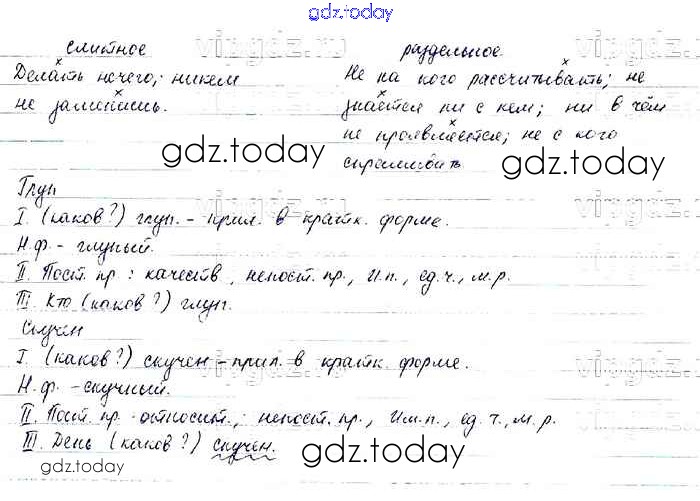 gdz.today
слитное
Делать нечего; никем
не
раздельное
Не на кого рассчитывать; не
знается ни с кем; ни в чём
не проявляется; не с кого
gdz.today
gdz.today
Глуп
I. (каков?) глуп. - прил. в кратк. форме.
Н.ф. - глупый.
II. Пост. пр: качеств, непост. пр., И.п., ед.ч., м.р.
III. Кто (каков?) глуп.
Скучен
I. (каков?) скучен - прил. в кратк. форме.
Н.ф. - скучный.
II. Пост. пр. относит.; непост. пр., Им.п., ед.ч., м.р.
III. День (каков?) скучен.
gdz.today
gdz.today
vipgdz.ru
vipgdz.ru